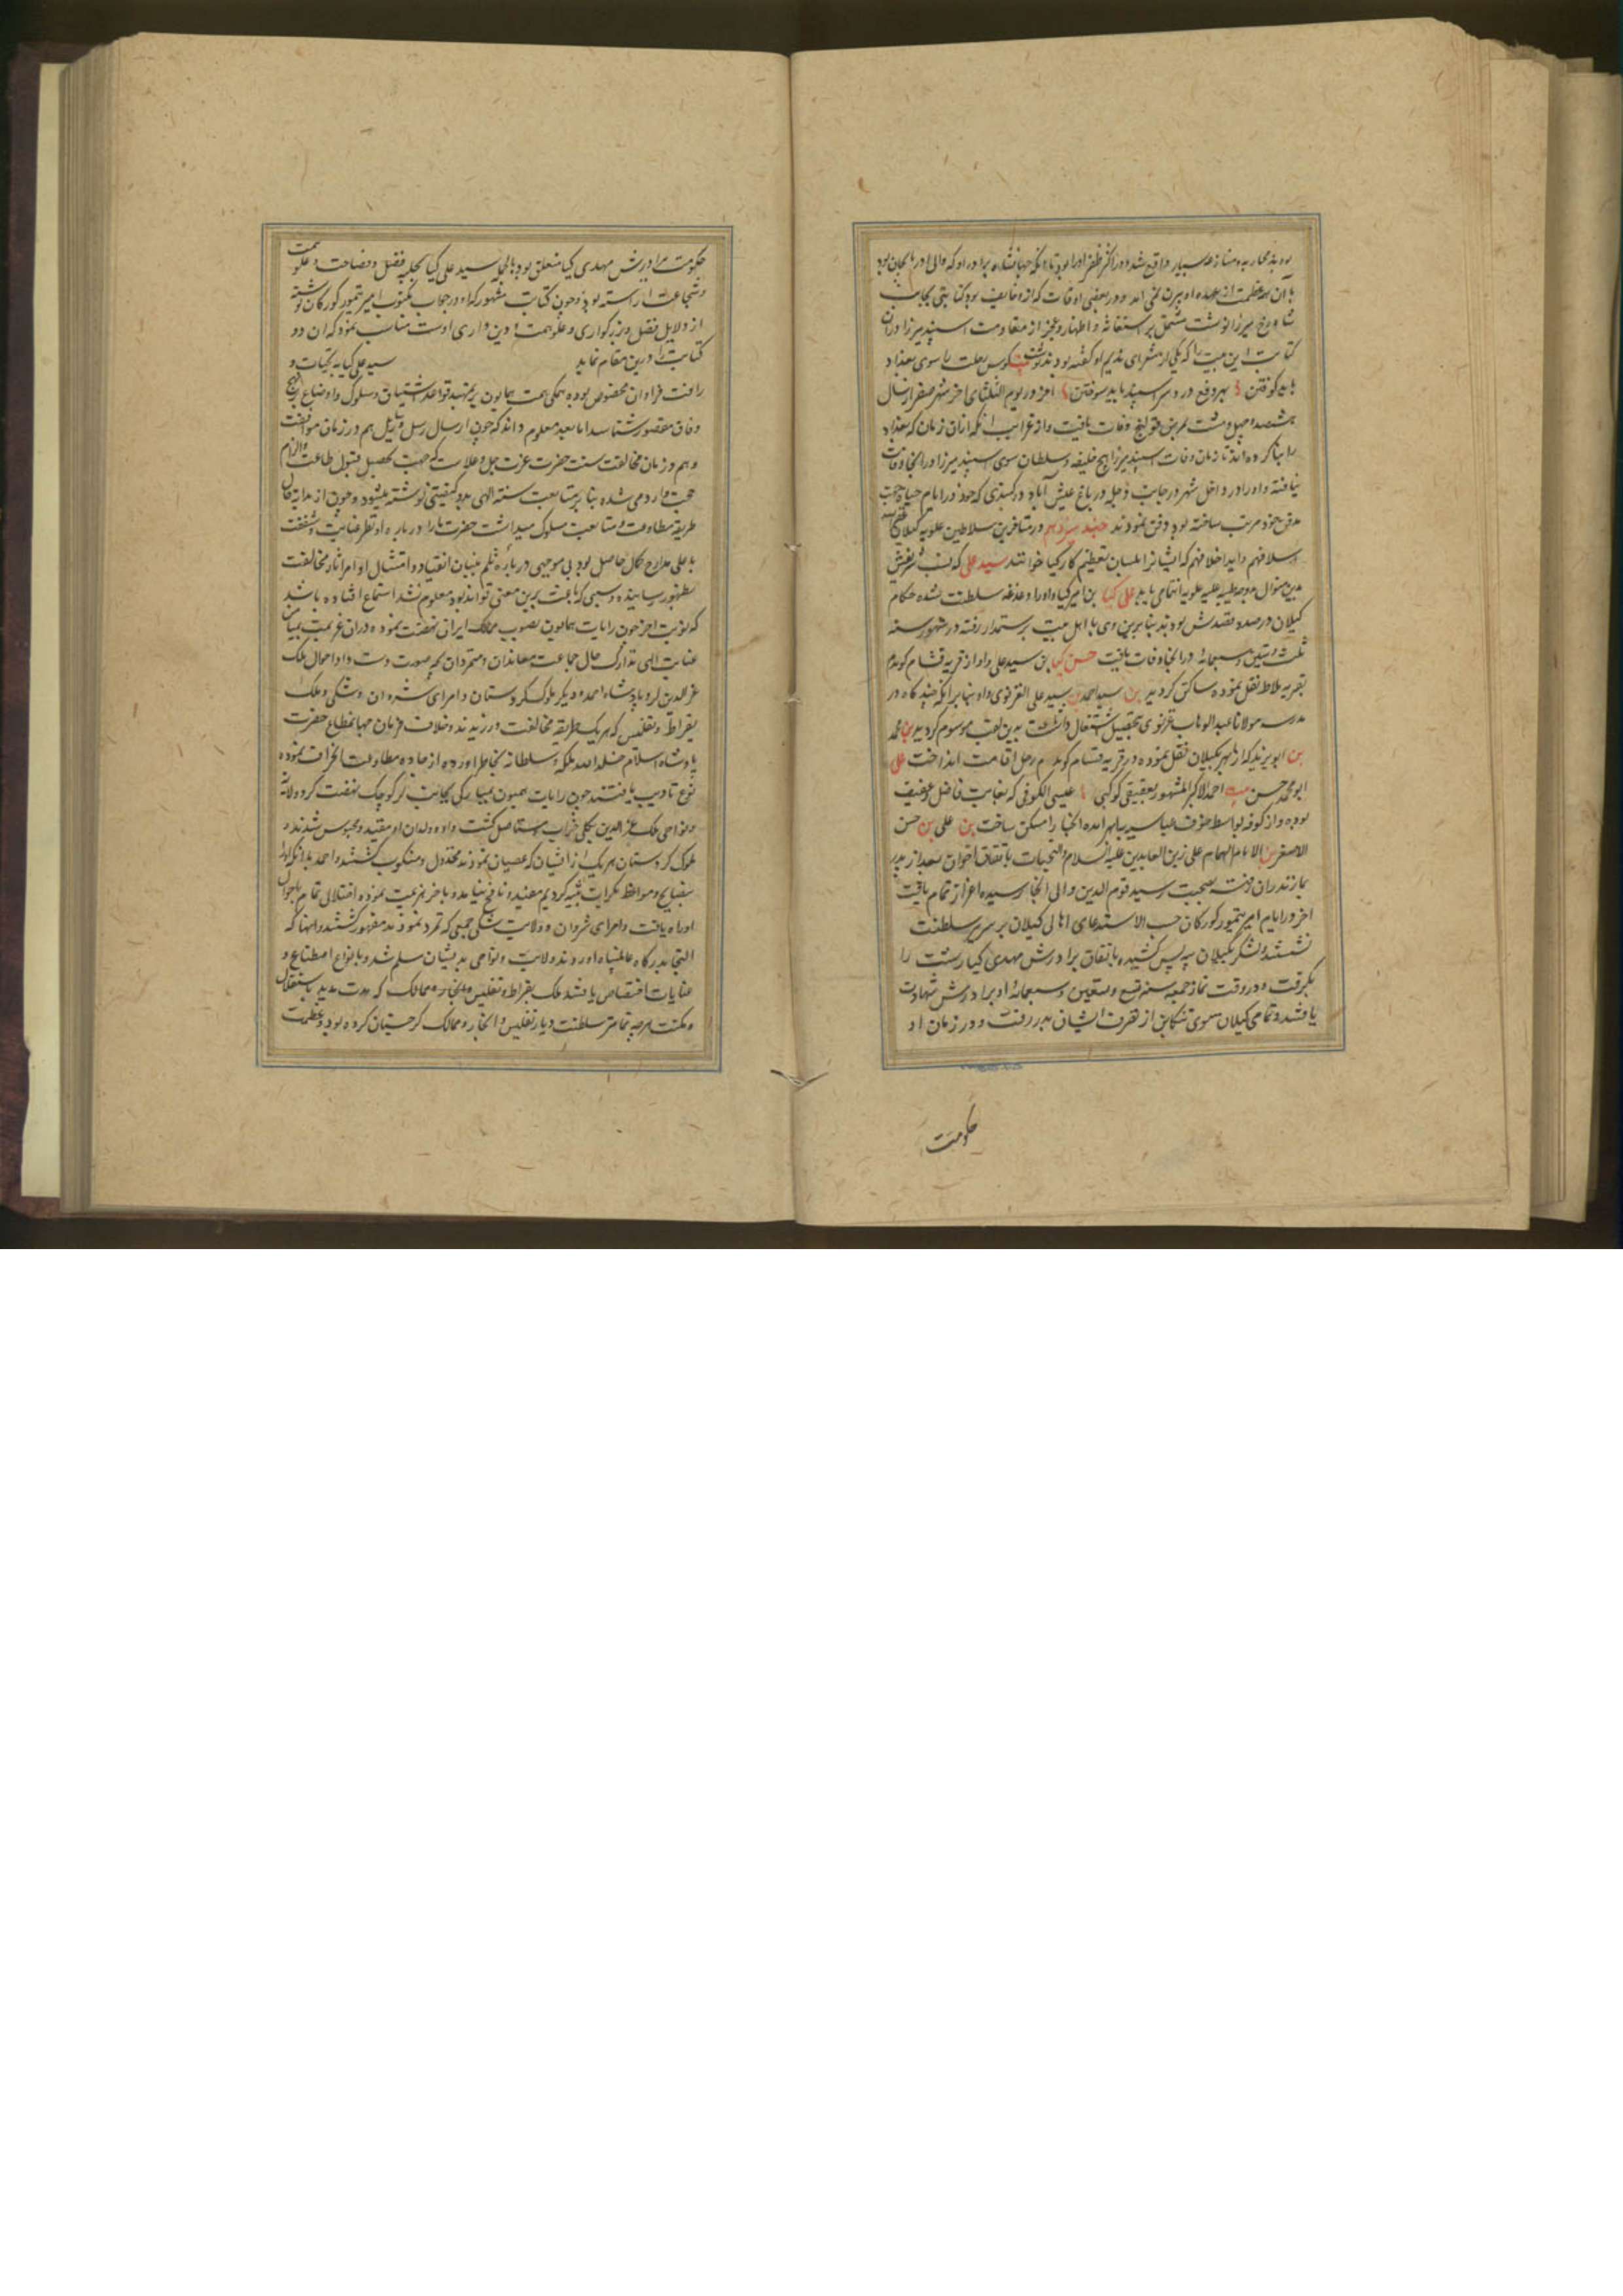 بوده‌اند محاربه و منازعه بسیار واقع شده و در اکثر ظفر او را بود تا آنکه جهانشاه برادر او که والی آذربایجان بود
با آن همه عظمت از عهده او بیرون نمی آمد و در بعضی اوقات که از او خایف بود کتابتی بجانب
شاهرخ میرزا نوشت مشتمل بر استغاثه و اظهار عجز از مقاومت اسپند میرزا و در آن
کتابت این بیت را که یکی از شعرای ندیم او گفته بود نوشت کوس رحلت را سوی بغداد
باید کوفتن بهر دفع درد سر اسپند باید سوختن آخر در یوم الثلثا آخر شهر صفر از سال
هشتصد و چهل و هشت بمرض قولنج وفات یافت و از غرایب آنکه از آن زمان که بغداد
را بنا کرده‌اند تا زمان وفات اسپند میرزا هیچ خلیفه و سلطان سوی اسپند میرزا در آنجا وفات
نیافته و او را در داخل شهر در جانب دجله در باغ عیش آباد در گنبدی که خود در ایام حیات جهت
مدفن خود مرتب ساخته بود دفن نمودند جند سیزدهم در متأخرین سلاطین علویه گیلان
اسلافهم و اید اخلافهم که ایشانرا بلسان تعظیم کارکیا خوانند سید علی که نسب شریفش
بدین منوال بدوحه طیبه علیه علویه انتمای یابد علی کیا بن امیر کیا و او را دغدغه سلطنت شده حکام
گیلان در صدد قصدش بودند بنابرین وی با اهل بیت برستمدار رفته در شهور سنه
ثلث و ستین و سبعمائه در آنجا وفات یافت حسن کیا بن سید علی و او از قریه فشام کوهدم
بقریه ملاط نقل نموده ساکن گردید بن سید احمد بن سید علی الغزنوی و او بنا بر آنکه چند گاه در
مدرسه مولانا عبدالوهاب غزنوی بتحصیل اشتغال داشت بدین لقب موسوم گردید بن محمد
بن ابو زید که از ابهر بگیلان نقل نموده در قریه فشام کوهدم رحل اقامت انداخت علی
ابو محمد حسن بن احمد الاکبر المشهور بعقیقی کوکبی بن عیسی الکوفی که بغایت فاضل و عفیف
بوده و از کوفه بواسطه خوف عباسیه بابهر آمده آنجا را مسکن ساخت بن علی بن حسن
الاصغر بن الامام الهمام علی زین العابدین علیه السلام و التحیات باتفاق اخوان بعد از پدر
بمازندران رفته بصحبت سید قوام الدین والی آنجا رسیده اعزاز تمام یافت
آخر در ایام امیر تیمور کورکان حسب الاستدعای اهالی گیلان بر سریر سلطنت
نشستند و لشکر بگیلان بیه پس کشیده باتفاق برادرش مهدی کیا رشت را
بگرفت و در وقت نماز جمعه سنه تسع و تسعین و سبعمائه او و برادرش شهادت
یافتند و تمامی گیلان سوی تنکابن از تصرف ایشان بدر رفت و در زمان او
حکومت
حکومت برادرش مهدی کیا متعلق بود بالجمله سید علی کیا بحلیه فضل و فصاحت و علو همت
و شجاعت آراسته بود و چون کتابت مشهور که او در جواب مکتوب امیر تیمور کورکان نوشته
از دلایل فضل و بزرکواری و علو همت و دین داری اوست مناسب نمود که آن دو
کتابت را درین مقام نماید سید علی کیا به تحیات و
رافت فراوان مخصوص بوده همکی همت همایون بر تمهید قواعد اشتیاق و سلوک و اوضاع نهج
وفاق مقصور شناسد اما بعد معلوم داند که چون ارسال رسل و رسایل هم در زمان موافقت
و هم در زمان مخالفت سنت حضرت عزت جل و علا ست که جهت تحصیل قبول طاعت و الزام
حجت وارد می شده بنا بر متابعت سنه الهی بدو کیفیتی نوشته میشود و چون از بدایة حال
طریقه مطاوعت و متابعت مسلوک میداشت حضرت ما را در باره او نظر عنایت و شفقت
باعلی مدارج کمال حاصل بود بی موجبی در باره ثلم بنیان انقیاد و امتثال اوامر آثار مخالفت
بظهور رسانیده و سببی که باعث برین معنی تواند بود معلوم نشد استماع افتاده باشد
که نوبت آخر چون رایات همایون بصوب ممالک ایران نهضت نموده در آن عزیمت بمیامن
عنایت الهی تدارک حال جماعت معاندان و متمردان بچه صورت دست داد احوال ملک
عزالدین لر و پادشاه احمد و دیگر ملوک کردستان و امرای شروان و شکی و ملک
بقراط و تفلیس که هریک طریقه مخالفت ورزیدند و خلاف فرمان جهانمطاع حضرت
پادشاه اسلام خلد الله ملکه و سلطانه بخاطر آورده از جاده مطاوعت انحراف نموده
نوع تادیب یافتند چون رایات همیون بمبارکی بجانب لر کوچک نهضت کرد ولایة
و نواحی ملک عزالدین بکلی خراب و مستاصل کشت و او و ولدان او مقید و محبوس شدند و
ملوک کردستان هریک از ایشان که عصیان نمودند مخذول و منکوب کشتند و احمد با آنکه او را
بنصایح و مواعظ بکرات تنبیه کردیم مفید و نافع نیامد و بآخر هزیمت نموده اختلالی تمام باحوال
او راه یافت و امرای شروان و ولایت شکی جمعی که تمرد نمودند مقهور کشتند و آنها که
التجا بدرکاه عالمپناه آوردند ولایت و نواحی بدیشان مسلم شد و بانواع اصطناع و
عنایات اختصاص یافتند ملک بقراط و تفلیس و انجاز و ممالک که مدت مدید باستقلال
و مکنت هرچه تمامتر سلطنت دیار تفلیس و انجاز و ممالک کرجستان کرده بود و بعظمت